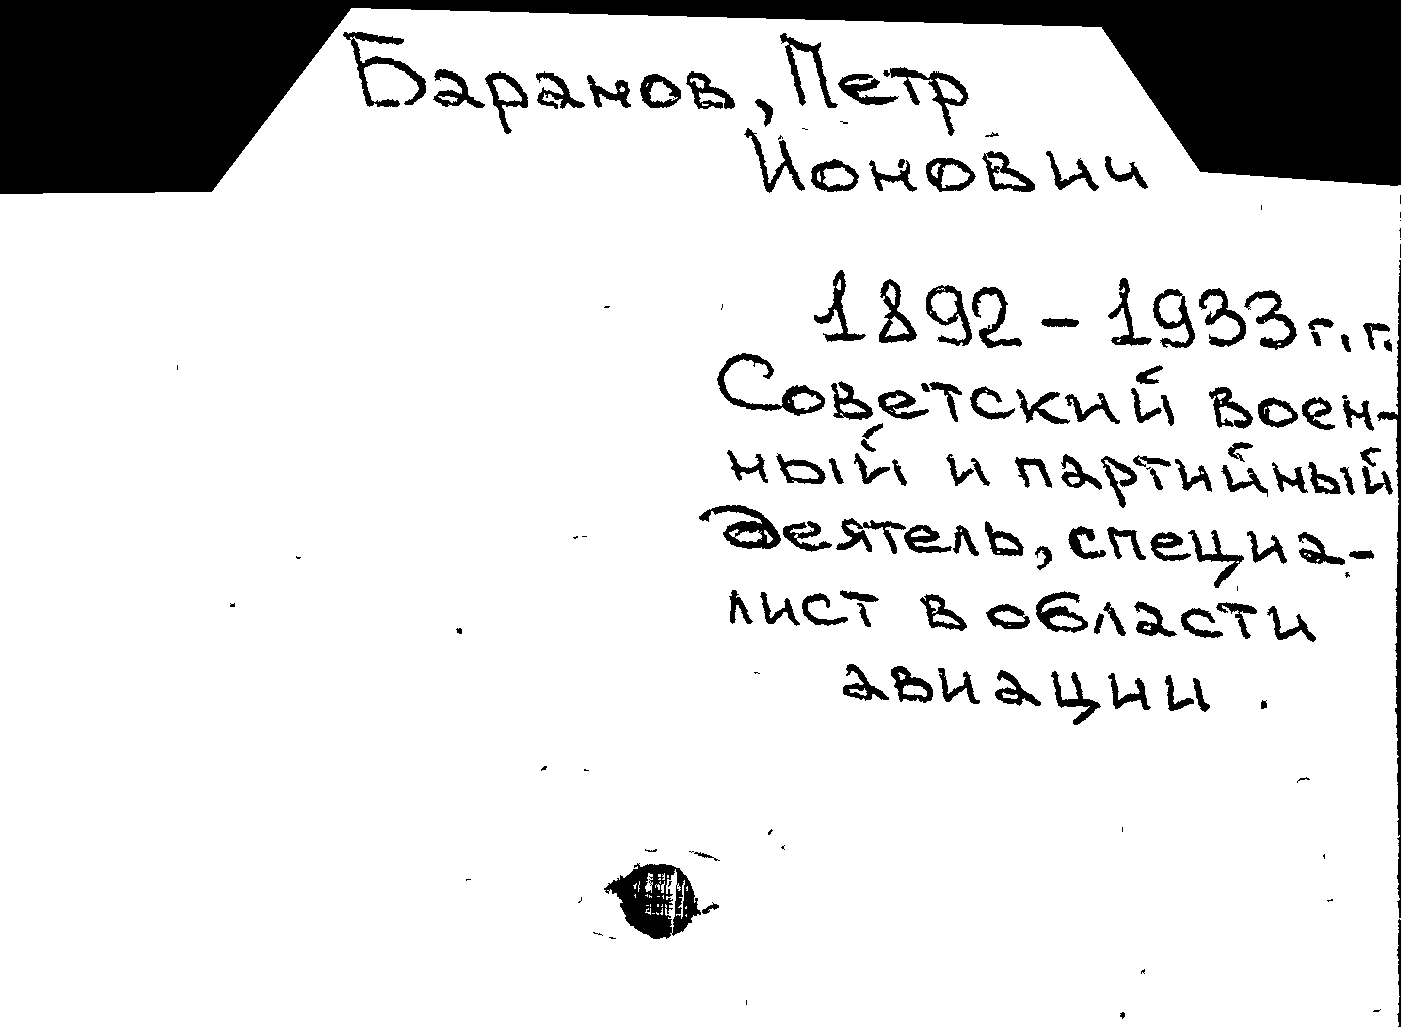 Баранов, Петр
Ионович
1892 - 1933 г.г.
Советский воен-
ный и партийный
деятель, специа-
лист в области
авиации.